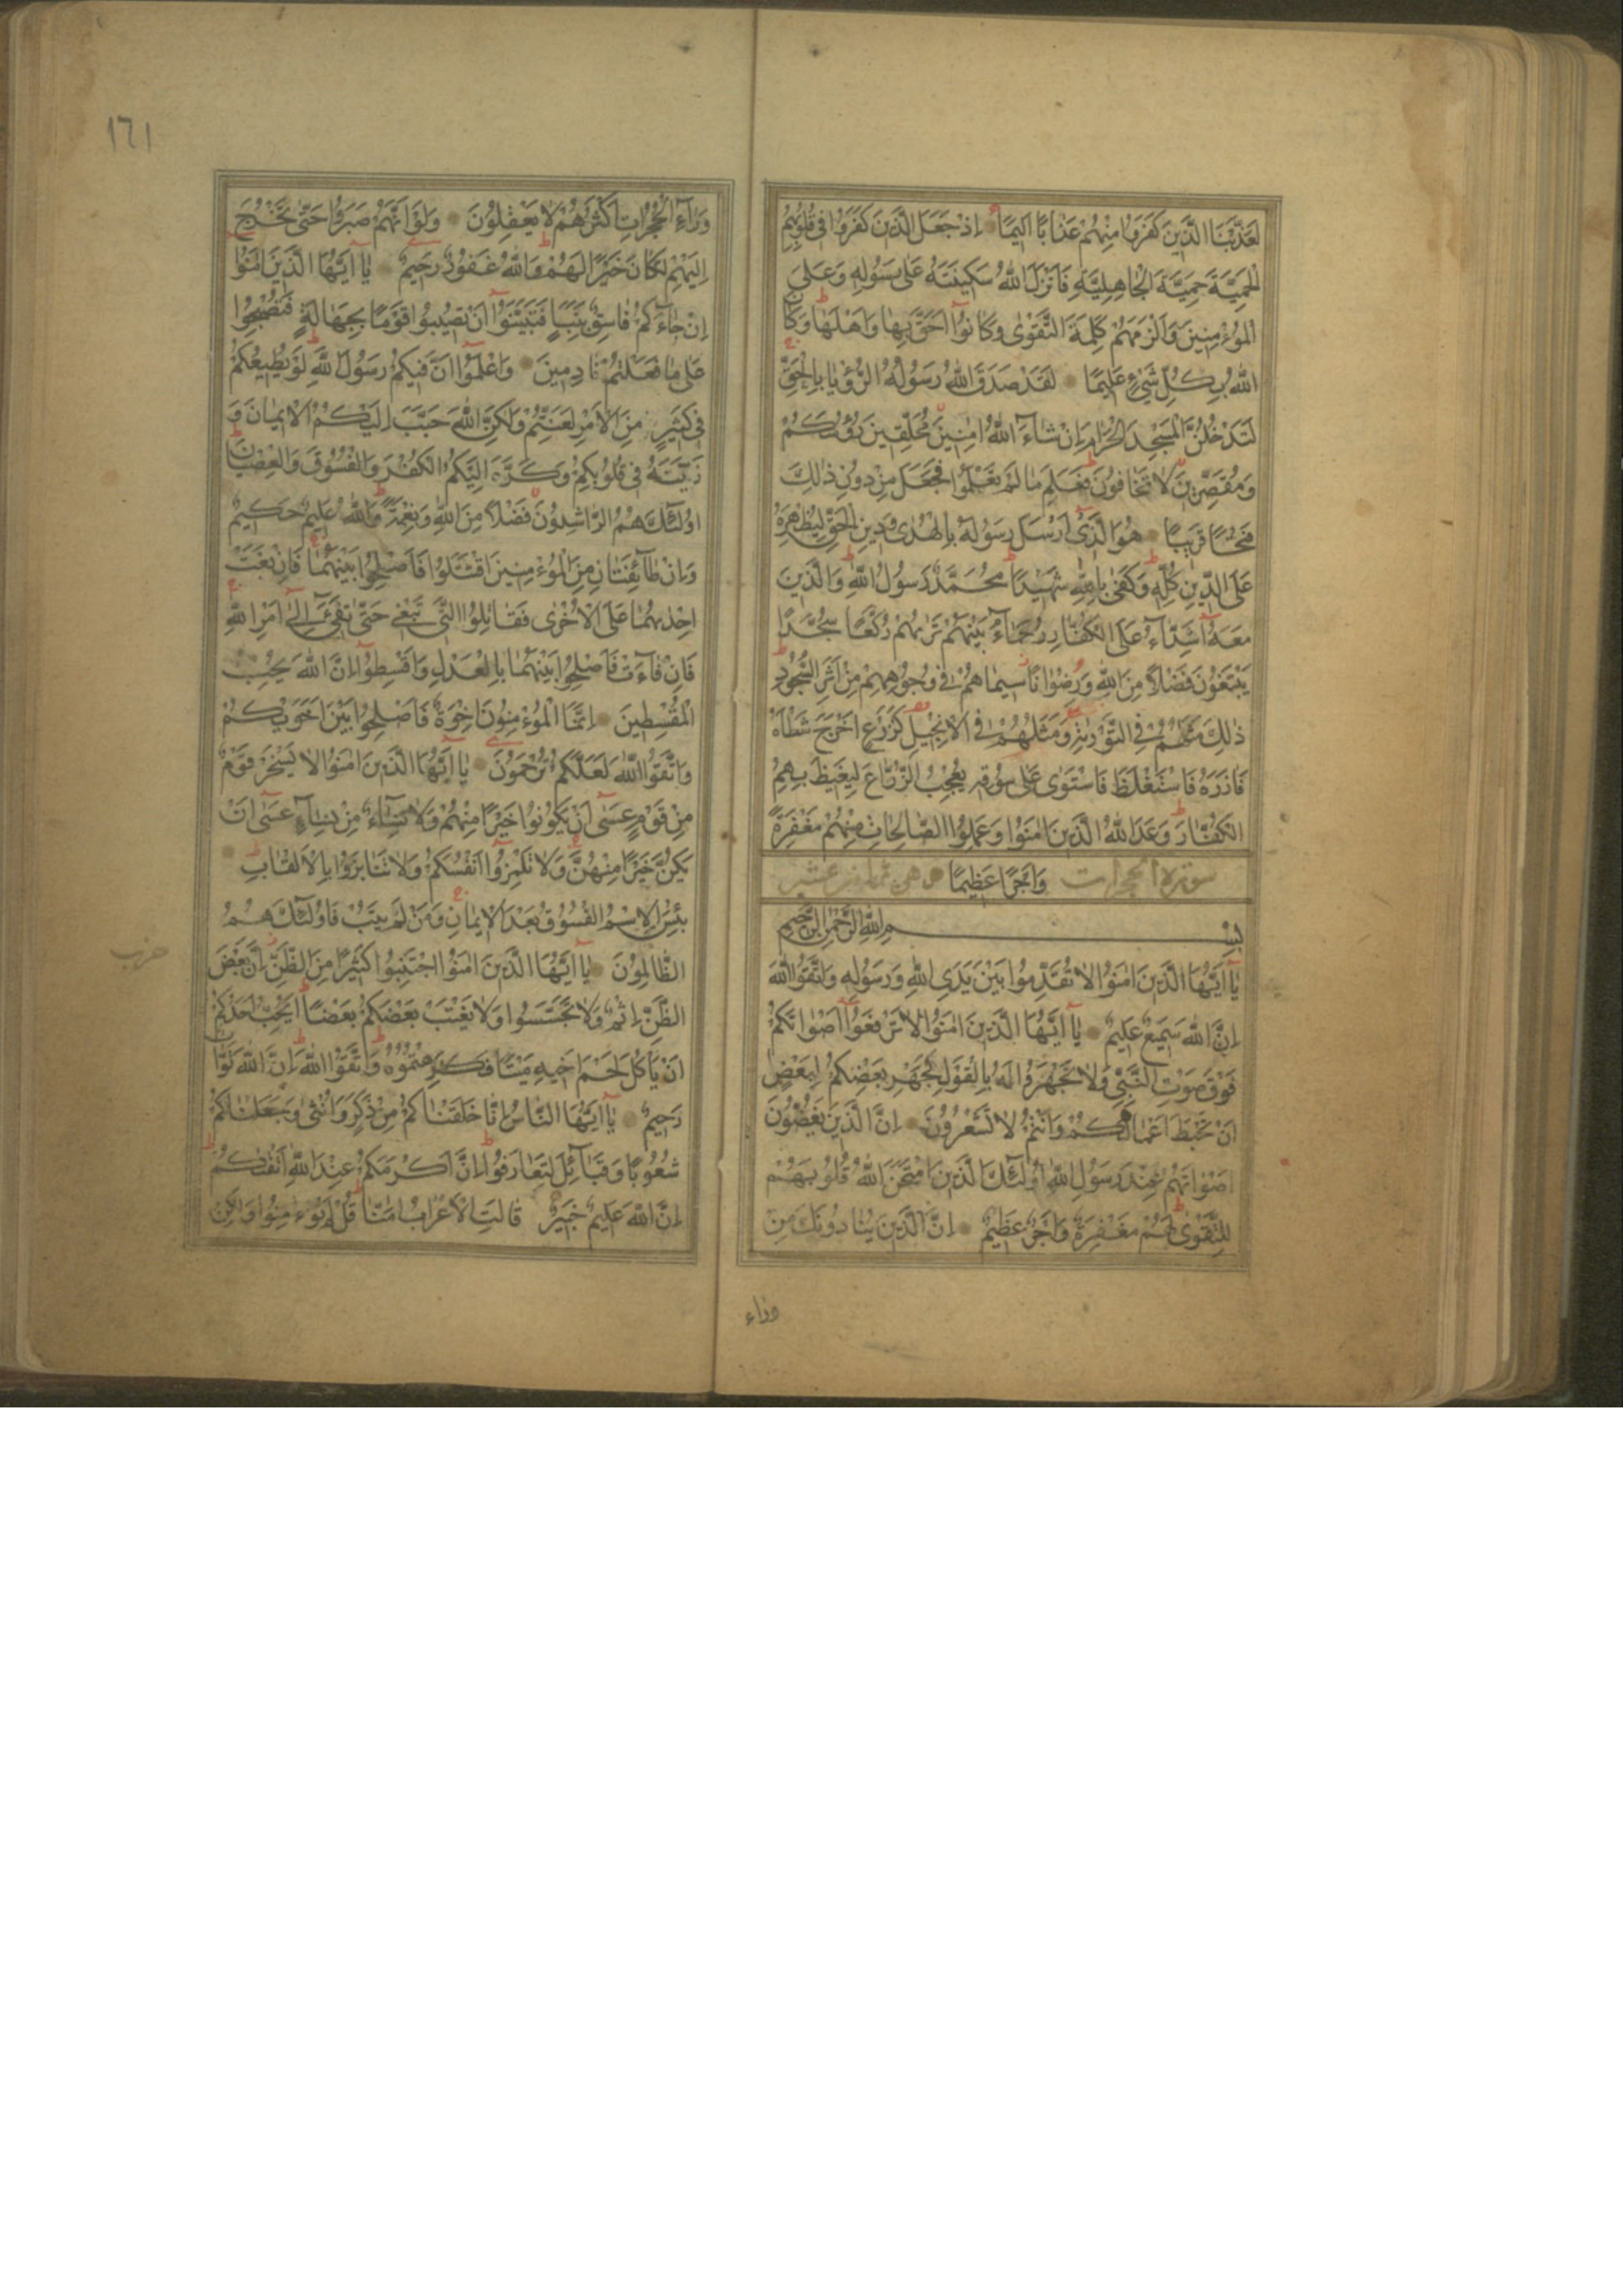 لَعَذَّبْنَا الَّذِينَ كَفَرُوا مِنْهُمْ عَذَابًا اَلِيمًا اِذْ جَعَلَ الَّذِينَ كَفَرُوا فِى قُلُوبِهِمُ
الْحَمِيَّةَ حَمِيَّةَ الْجَاهِلِيَّةِ فَاَنْزَلَ اللّٰهُ سَكِينَتَهُ عَلٰى رَسُولِهِ وَعَلَى
الْمُؤْمِنِينَ وَاَلْزَمَهُمْ كَلِمَةَ التَّقْوٰى وَكَانُوٓا اَحَقَّ بِهَا وَاَهْلَهَا وَكَانَ
اللّٰهُ بِكُلِّ شَىْءٍ عَلِيمًا لَقَدْ صَدَقَ اللّٰهُ رَسُولَهُ الرُّؤْيَا بِالْحَقِّ
لَتَدْخُلُنَّ الْمَسْجِدَ الْحَرَامَ اِنْ شَآءَ اللّٰهُ اٰمِنِينَ مُحَلِّقِينَ رُؤُسَكُمْ
وَمُقَصِّرِينَ لَا تَخَافُونَ فَعَلِمَ مَا لَمْ تَعْلَمُوا فَجَعَلَ مِنْ دُونِ ذٰلِكَ
فَتْحًا قَرِيبًا هُوَ الَّذِىٓ اَرْسَلَ رَسُولَهُ بِالْهُدٰى وَدِينِ الْحَقِّ لِيُظْهِرَهُ
عَلَى الدِّينِ كُلِّهِ وَكَفٰى بِاللّٰهِ شَهِيدًا مُحَمَّدٌ رَسُولُ اللّٰهِ وَالَّذِينَ
مَعَهُٓ اَشِدَّآءُ عَلَى الْكُفَّارِ رُحَمَآءُ بَيْنَهُمْ تَرٰيهُمْ رُكَّعًا سُجَّدًا
يَبْتَغُونَ فَضْلًا مِنَ اللّٰهِ وَرِضْوَانًا سِيمَاهُمْ فِى وُجُوهِهِمْ مِنْ اَثَرِ السُّجُودِ
ذٰلِكَ مَثَلُهُمْ فِى التَّوْرٰيةِ وَمَثَلُهُمْ فِى الْاِنْجِيلِ كَزَرْعٍ اَخْرَجَ شَطْاَهُ
فَاٰزَرَهُ فَاسْتَغْلَظَ فَاسْتَوٰى عَلٰى سُوقِهِ يُعْجِبُ الزُّرَّاعَ لِيَغِيظَ بِهِمُ
الْكُفَّارَ وَعَدَ اللّٰهُ الَّذِينَ اٰمَنُوا وَعَمِلُوا الصَّالِحَاتِ مِنْهُمْ مَغْفِرَةً
سورة الحجرات وَاَجْرًا عَظِيمًا وهى ثمان عشر
بِسْمِ اللّٰهِ الرَّحْمٰنِ الرَّحِيمِ
يَآ اَيُّهَا الَّذِينَ اٰمَنُوا لَا تُقَدِّمُوا بَيْنَ يَدَىِ اللّٰهِ وَرَسُولِهِ وَاتَّقُوا اللّٰهَ
اِنَّ اللّٰهَ سَمِيعٌ عَلِيمٌ يَآ اَيُّهَا الَّذِينَ اٰمَنُوا لَا تَرْفَعُوٓا اَصْوَاتَكُمْ
فَوْقَ صَوْتِ النَّبِىِّ وَلَا تَجْهَرُوا لَهُ بِالْقَوْلِ كَجَهْرِ بَعْضِكُمْ لِبَعْضٍ
اَنْ تَحْبَطَ اَعْمَالُكُمْ وَاَنْتُمْ لَا تَشْعُرُونَ اِنَّ الَّذِينَ يَغُضُّونَ
اَصْوَاتَهُمْ عِنْدَ رَسُولِ اللّٰهِ اُولٰٓئِكَ الَّذِينَ امْتَحَنَ اللّٰهُ قُلُوبَهُمْ
لِلتَّقْوٰى لَهُمْ مَغْفِرَةٌ وَاَجْرٌ عَظِيمٌ اِنَّ الَّذِينَ يُنَادُونَكَ مِنْ
وراء
١٦١
وَرَآءِ الْحُجُرَاتِ اَكْثَرُهُمْ لَا يَعْقِلُونَ وَلَوْ اَنَّهُمْ صَبَرُوا حَتّٰى تَخْرُجَ
اِلَيْهِمْ لَكَانَ خَيْرًا لَهُمْ وَاللّٰهُ غَفُورٌ رَحِيمٌ يَآ اَيُّهَا الَّذِينَ اٰمَنُوٓا
اِنْ جَآءَكُمْ فَاسِقٌ بِنَبَاٍ فَتَبَيَّنُوٓا اَنْ تُصِيبُوا قَوْمًا بِجَهَالَةٍ فَتُصْبِحُوا
عَلٰى مَا فَعَلْتُمْ نَادِمِينَ وَاعْلَمُوٓا اَنَّ فِيكُمْ رَسُولَ اللّٰهِ لَوْ يُطِيعُكُمْ
فِى كَثِيرٍ مِنَ الْاَمْرِ لَعَنِتُّمْ وَلٰكِنَّ اللّٰهَ حَبَّبَ اِلَيْكُمُ الْاِيمَانَ وَ
زَيَّنَهُ فِى قُلُوبِكُمْ وَكَرَّهَ اِلَيْكُمُ الْكُفْرَ وَالْفُسُوقَ وَالْعِصْيَانَ
اُولٰٓئِكَ هُمُ الرَّاشِدُونَ فَضْلًا مِنَ اللّٰهِ وَنِعْمَةً وَاللّٰهُ عَلِيمٌ حَكِيمٌ
وَاِنْ طَآئِفَتَانِ مِنَ الْمُؤْمِنِينَ اقْتَتَلُوا فَاَصْلِحُوا بَيْنَهُمَا فَاِنْ بَغَتْ
اِحْدٰيهُمَا عَلَى الْاُخْرٰى فَقَاتِلُوا الَّتِى تَبْغِى حَتّٰى تَفِىٓءَ اِلٰٓى اَمْرِ اللّٰهِ
فَاِنْ فَآءَتْ فَاَصْلِحُوا بَيْنَهُمَا بِالْعَدْلِ وَاَقْسِطُوا اِنَّ اللّٰهَ يُحِبُّ
الْمُقْسِطِينَ اِنَّمَا الْمُؤْمِنُونَ اِخْوَةٌ فَاَصْلِحُوا بَيْنَ اَخَوَيْكُمْ
وَاتَّقُوا اللّٰهَ لَعَلَّكُمْ تُرْحَمُونَ يَآ اَيُّهَا الَّذِينَ اٰمَنُوا لَا يَسْخَرْ قَوْمٌ
مِنْ قَوْمٍ عَسٰٓى اَنْ يَكُونُوا خَيْرًا مِنْهُمْ وَلَا نِسَآءٌ مِنْ نِسَآءٍ عَسٰٓى اَنْ
يَكُنَّ خَيْرًا مِنْهُنَّ وَلَا تَلْمِزُوٓا اَنْفُسَكُمْ وَلَا تَنَابَزُوا بِالْاَلْقَابِ
بِئْسَ الْاِسْمُ الْفُسُوقُ بَعْدَ الْاِيمَانِ وَمَنْ لَمْ يَتُبْ فَاُولٰٓئِكَ هُمُ
حزب
الظَّالِمُونَ يَآ اَيُّهَا الَّذِينَ اٰمَنُوا اجْتَنِبُوا كَثِيرًا مِنَ الظَّنِّ اِنَّ بَعْضَ
الظَّنِّ اِثْمٌ وَلَا تَجَسَّسُوا وَلَا يَغْتَبْ بَعْضُكُمْ بَعْضًا اَيُحِبُّ اَحَدُكُمْ
اَنْ يَاْكُلَ لَحْمَ اَخِيهِ مَيْتًا فَكَرِهْتُمُوهُ وَاتَّقُوا اللّٰهَ اِنَّ اللّٰهَ تَوَّابٌ
رَحِيمٌ يَآ اَيُّهَا النَّاسُ اِنَّا خَلَقْنَاكُمْ مِنْ ذَكَرٍ وَاُنْثٰى وَجَعَلْنَاكُمْ
شُعُوبًا وَقَبَآئِلَ لِتَعَارَفُوا اِنَّ اَكْرَمَكُمْ عِنْدَ اللّٰهِ اَتْقٰيكُمْ
اِنَّ اللّٰهَ عَلِيمٌ خَبِيرٌ قَالَتِ الْاَعْرَابُ اٰمَنَّا قُلْ لَمْ تُؤْمِنُوا وَلٰكِنْ